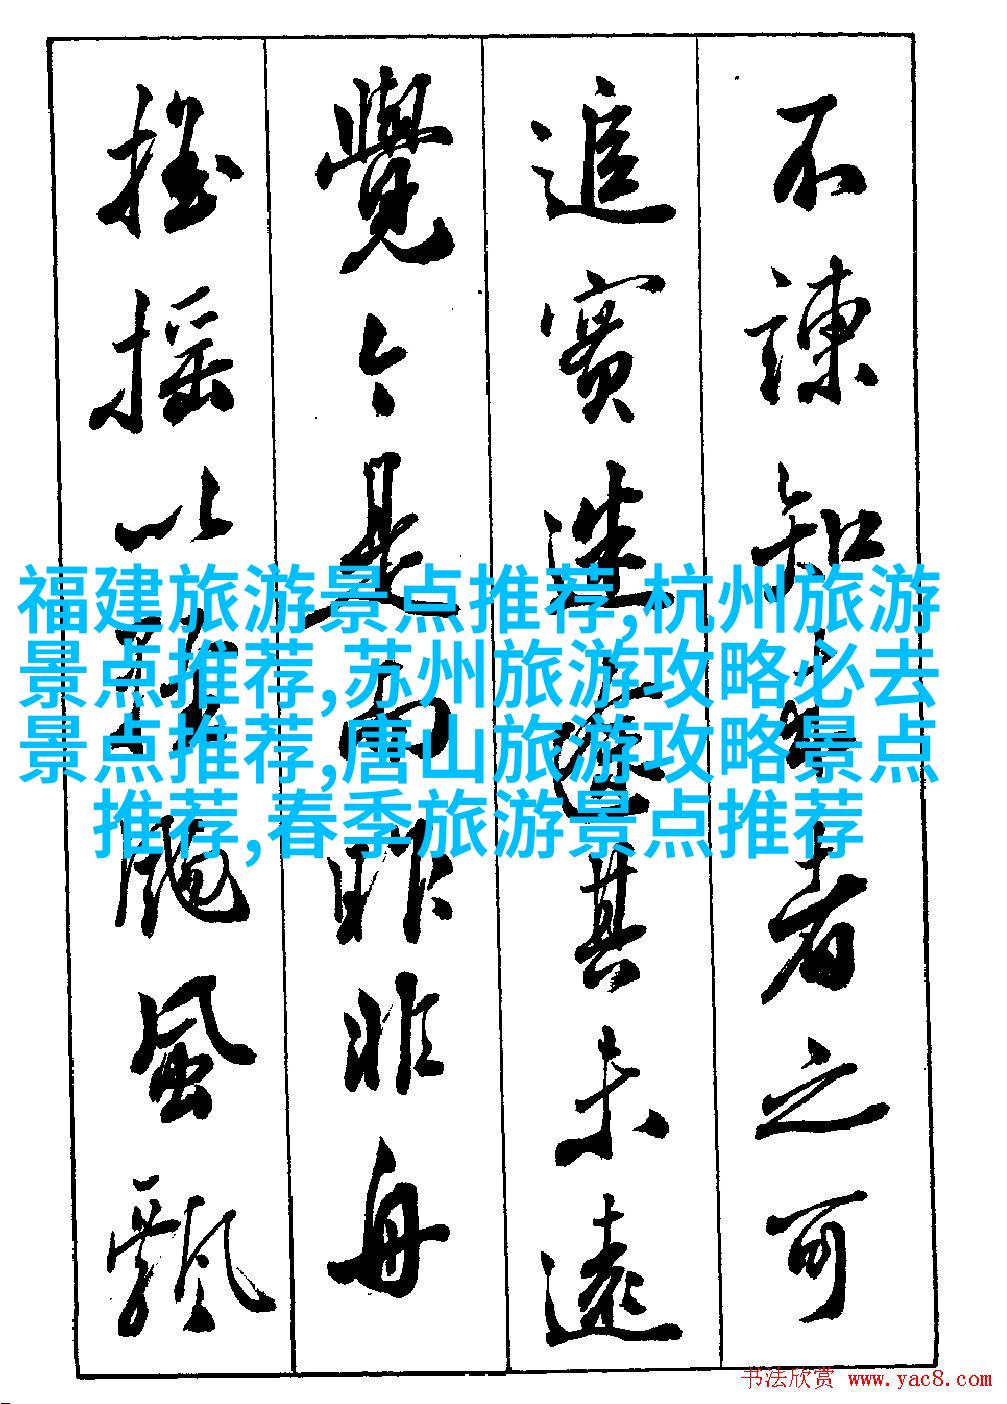 不諫知来者之可
追實迷途其未遠
覺今是而昨非舟
摇摇以輕颺風飄
福建旅游景点推荐,杭州旅游
景点推荐,苏州旅游攻略必去
景点推荐,唐山旅游攻略景点
推荐,春季旅游景点推荐
书法欣赏 www.yac8.com